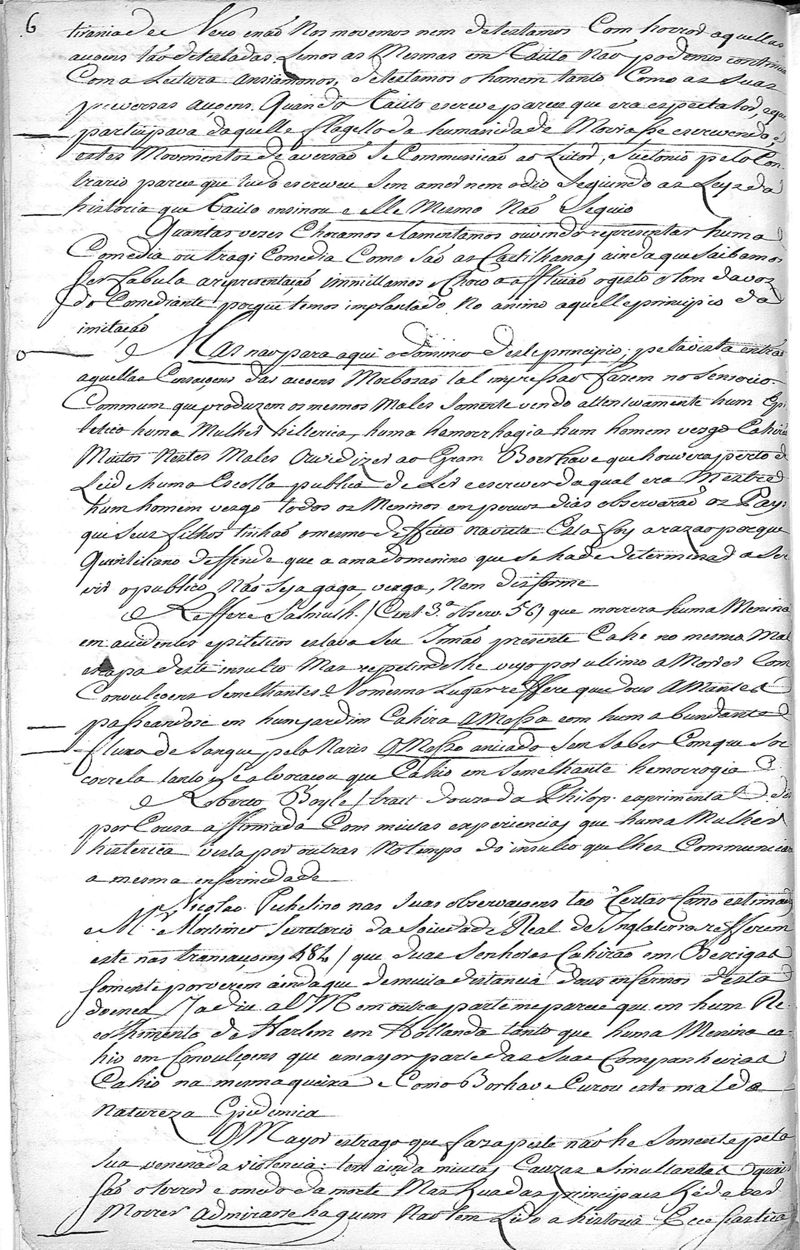 6
tirania de Nero e não Nos movemos nem detestamos Com horror aquellas
açoens tão detestadas Lemos as Mesmas em Tacito Não podemos continuar
Com a Leitura ansiammonos, detestamos o homem tanto Como as suas
preversas açoens. Quando Tacito escreve parece que era espectator, e que
participava daquelle flagello da humanidade Moviase escrevendo, e
estes Movimentos de aversão Se Communicão ao Leitor, Suetonio pelo Con
trario parece que tudo escreveu Sem amor nem odio Seguindo as Leys da
historia que Tacito ensinou e elle Mesmo Não Seguio
Quantas vezes Choramos e lamentamos ouvindo representar huma
Comedia ou tragi Comedia Como são as Castilhanas ainda que Saibamos
Ser fabula a representação immitamos o Choro a aflição o gesto o tom da voz
do Comediante porque temos implantado No animo aquelle principio da
imitação
e Mas não para aqui o dominio deste principio, pela vista entrão
aquellas Consagens das açoens Morbosas tal impressão fazem no Sensorio
Commum que produzem os mesmos Males Somente vendo attentivamente hum Epi
letico huma Mulher histerica, huma hemorrhagia hum homem vesgo Cahirão
Muitos Nestes Males Ouvi dizer ao Gram Boerhave que houvera perto de
Leid huma Escolla publica de Ler e escrever da qual era Mestre
hum homem vesgo todos os Meninos em poucos dias observarão os Pays
que seus filhos tinhão o mesmo deffeito na vista Esta foy a razão porque
Quintiliano deffende que a ama do menino que se ha de determinar a Ser
vir o publico, Não Seja gaga, vesga, Nem disforme
e Reffere Salmuth. (Cent. 3.ª observ. 56) que morrera huma Menina
em accidentes epileticos estava Seu Irmão presente Cahe no mesmo Mal
escapa deste insulto Mas repetindolhe veyo por ultimo a Morrer Com
Convulçoens Semelhantes e No mesmo Lugar reffere que dous Amantes
passeandose em hum jardim Cahira a Mossa com hum abundante
fluxo de Sangue pelo Naris O Mosso ancicado Sem Saber Com que So
correla tanto Se alvoraçou que Cahio em Semelhante hemorrogia
e Roberto Boyle (tract. Philos. experimental) dá
por Couza affirmada Com muitas experiencias que huma Mulher
histerica vista por outras No tempo do insulto que lhes Communica
a mesma enfermidade
Nicolao Pichelino nas Suas observaçoens tão Certas Como estimadas
e Mr. Mortimer Secretario da Sociedade Real de Inglaterra refferem
este nas transaçoens 484) que duas Senhoras Cahirão em Bexigas
Somente por verem ainda que de muita distancia dous enfermos desta
doença em outra parte me parece que em hum Re
colhimento de Harlem em Hollanda tanto que huma Menina ca
hio em Convulçoens que a mayor parte das Suas Companheiras
Cahio na mesma queixa e Como Borhave Curou este mal da
Natureza Epidemica
O Mayor estrago que faz a peste não he Somente pela
Sua venenada violencia: tem ainda muitas Cauzas Simultaneas quais
são o terror e o medo da morte Mas hua das principaes he de ver
Morrer Admirarseha quem Não tem Lido a historia Eccleziastica